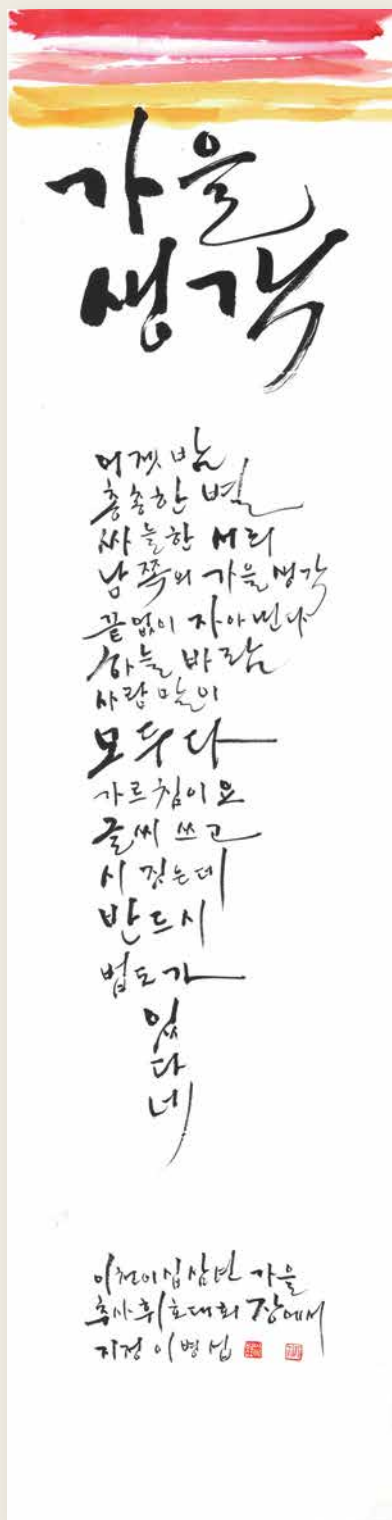 가을
생각
어젯밤
총총한 별
싸늘한 서리
남쪽의 가을 생각
끝없이 자아낸다
하늘 바람
사람 말이
모두 다
가르침이요
글씨 쓰고
시 짓는데
반드시
법도가
있
다
네
이천이십삼년 가을
추사휘호대회 장에서
지정 이병섭